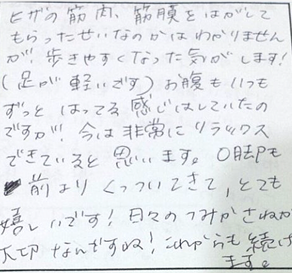 ヒザの筋肉、筋膜をはがして
もらったせいなのかはわかりません
が、歩きやすくなった気がします!
(足が軽いです) お腹もいつも
ずっとはってる感じはしていたの
ですが、今は非常にリラックス
できていると思います。O脚も
前よりくっついてきて、とても
嬉しいです!日々のつみかさねが
大切なんですね!これからも続け
ます。